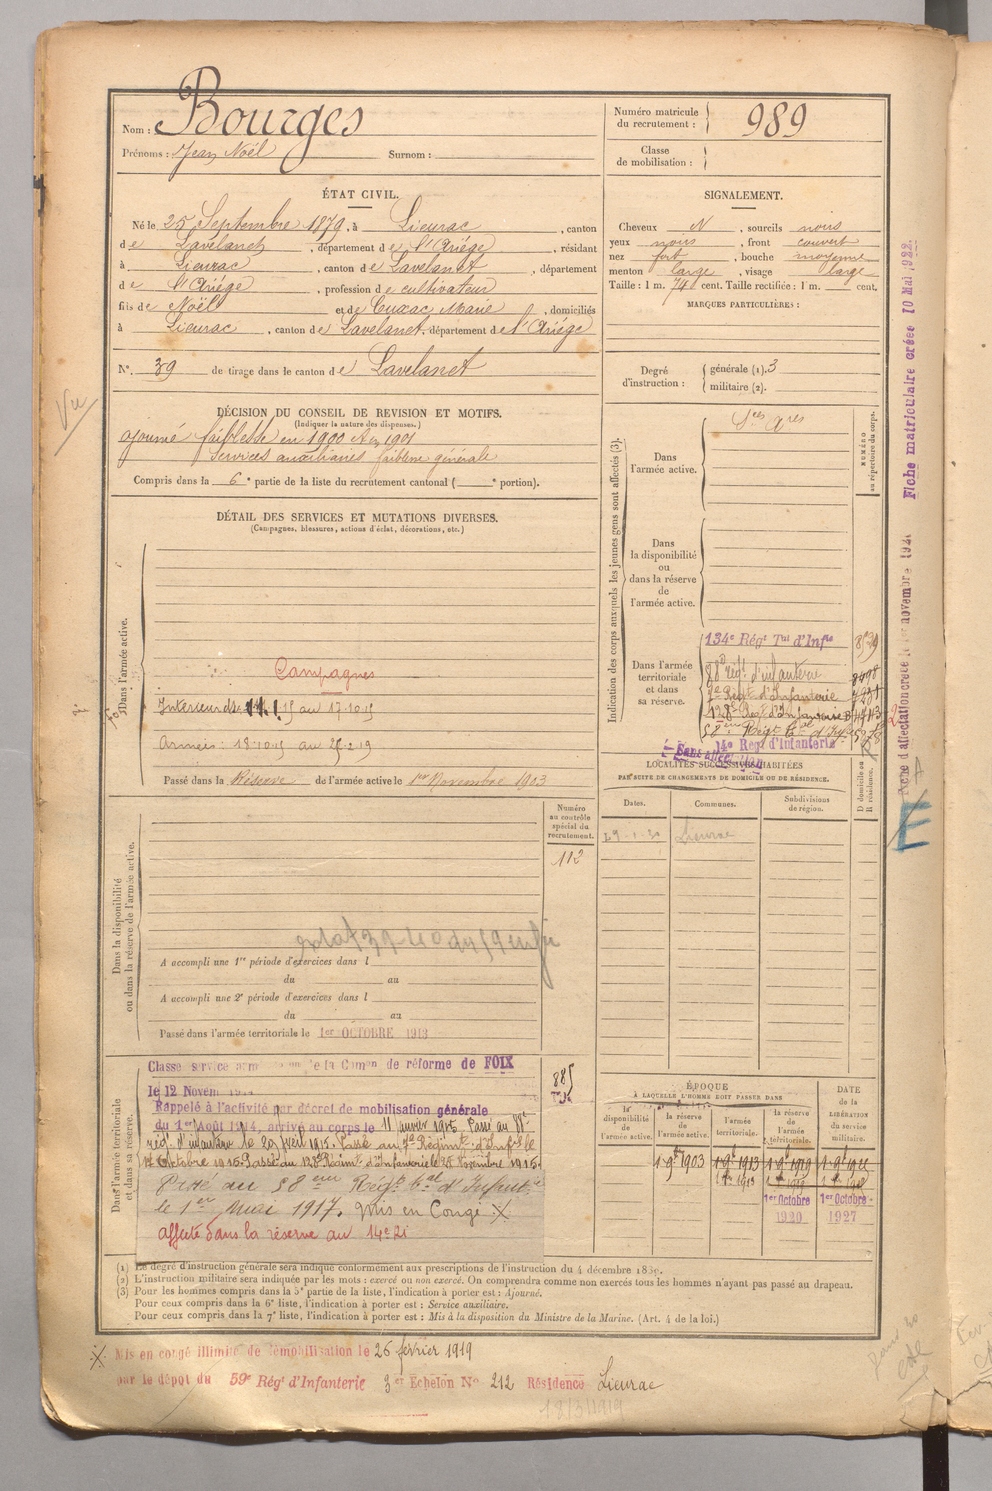 Nom : Bourges
Prénoms : Jean Noël Surnom :
Numéro matricule du recrutement : 989
Classe de mobilisation :
ÉTAT CIVIL.
Né le 25 Septembre 1879, à Lieurac, canton
de Lavelanet, département de l'Ariége, résidant
à Lieurac, canton de Lavelanet, département
de l'Ariége, profession de cultivateur
fils de Noël et de Cuxac Marie, domiciliés
à Lieurac, canton de Lavelanet, département de l'Ariége
N° 39 de tirage dans le canton de Lavelanet
SIGNALEMENT.
Cheveux N, sourcils noirs
yeux noirs, front couvert
nez fort, bouche moyenne
menton large, visage large
Taille : 1 m. 74 cent. Taille rectifiée : 1 m. cent.
MARQUES PARTICULIÈRES :
Degré d'instruction : générale (1). 3
militaire (2).
Vu
DÉCISION DU CONSEIL DE REVISION ET MOTIFS.
(Indiquer la nature des dispenses.)
ajourné faiblesse en 1900 et en 1901
Services auxiliaires faiblesse générale
Compris dans la 6e partie de la liste du recrutement cantonal ( e portion).
DÉTAIL DES SERVICES ET MUTATIONS DIVERSES.
(Campagnes, blessures, actions d'éclat, décorations, etc.)
Dans l'armée active.
Campagnes
Intérieur du 11.1.15 au 17.10.15
Armées : 18.10.15 au 2.19
Passé dans la Réserve de l'armée active le 1er Novembre 1903
Indication des corps auxquels les jeunes gens sont affectés (3).
NUMÉRO au répertoire du corps.
Dans l'armée active.
Sces Ares
Dans la disponibilité ou dans la réserve de l'armée active.
Dans l'armée territoriale et dans sa réserve.
134e Régt Tal d'Infie
88e régt d'infanterie
7e Régt d'Infanterie
128e Régt d'Infanterie
58ème Régt Tal d'Infie
14e Régt d'Infanterie
Sans affectation
LOCALITÉS SUCCESSIVES HABITÉES
PAR SUITE DE CHANGEMENTS DE DOMICILE OU DE RÉSIDENCE.
Dates. Communes. Subdivisions de région. D domicile ou R résidence.
Lieurac
Fiche matriculaire créée 10 Mai 1922.
Fiche d'affectation créée le 1er novembre
E
Dans la disponibilité ou dans la réserve de l'armée active.
Numéro au contrôle spécial du recrutement.
112
A accompli une 1re période d'exercices dans l
du au
A accompli une 2e période d'exercices dans l
du au
Passé dans l'armée territoriale le 1er OCTOBRE 1913
Dans l'armée territoriale et dans sa réserve.
885
Classé service armé de la Comon de réforme de FOIX
le 12 Novem
Rappelé à l'activité par décret de mobilisation générale
du 1er Août 1914, arrivé au corps le 11 janvier 1915. Passé au 88e
régt d'infanterie le 29 avril 1915. Passé au 7e Régiment d'Infie le
17 Octobre 1915. Passé au 128e Régiment d'Infanterie le 28 Novembre 1915.
Passé au 58ème Régt Tal d'Infanterie
le 1er Mars 1917. Mis en Congé
affecté dans la réserve au 14e RI
ÉPOQUE
À LAQUELLE L'HOMME DOIT PASSER DANS
la disponibilité de l'armée active. la réserve de l'armée active. l'armée territoriale. la réserve de l'armée territoriale. DATE de la LIBÉRATION du service militaire.
1 9bre 1903 1 9bre 1913 1 9bre 1919
1er Octobre 1920 1er Octobre 1927
(1) Le degré d'instruction générale sera indiqué conformément aux prescriptions de l'instruction du 4 décembre 1889.
(2) L'instruction militaire sera indiquée par les mots : exercé ou non exercé. On comprendra comme non exercés tous les hommes n'ayant pas passé au drapeau.
(3) Pour les hommes compris dans la 5e partie de la liste, l'indication à porter est : Ajourné.
Pour ceux compris dans la 6e liste, l'indication à porter est : Service auxiliaire.
Pour ceux compris dans la 7e liste, l'indication à porter est : Mis à la disposition du Ministre de la Marine. (Art. 4 de la loi.)
Mis en congé illimité de démobilisation le 26 février 1919
par le dépôt du 59e Régt d'Infanterie 3e Echelon No 212 Résidence Lieurac